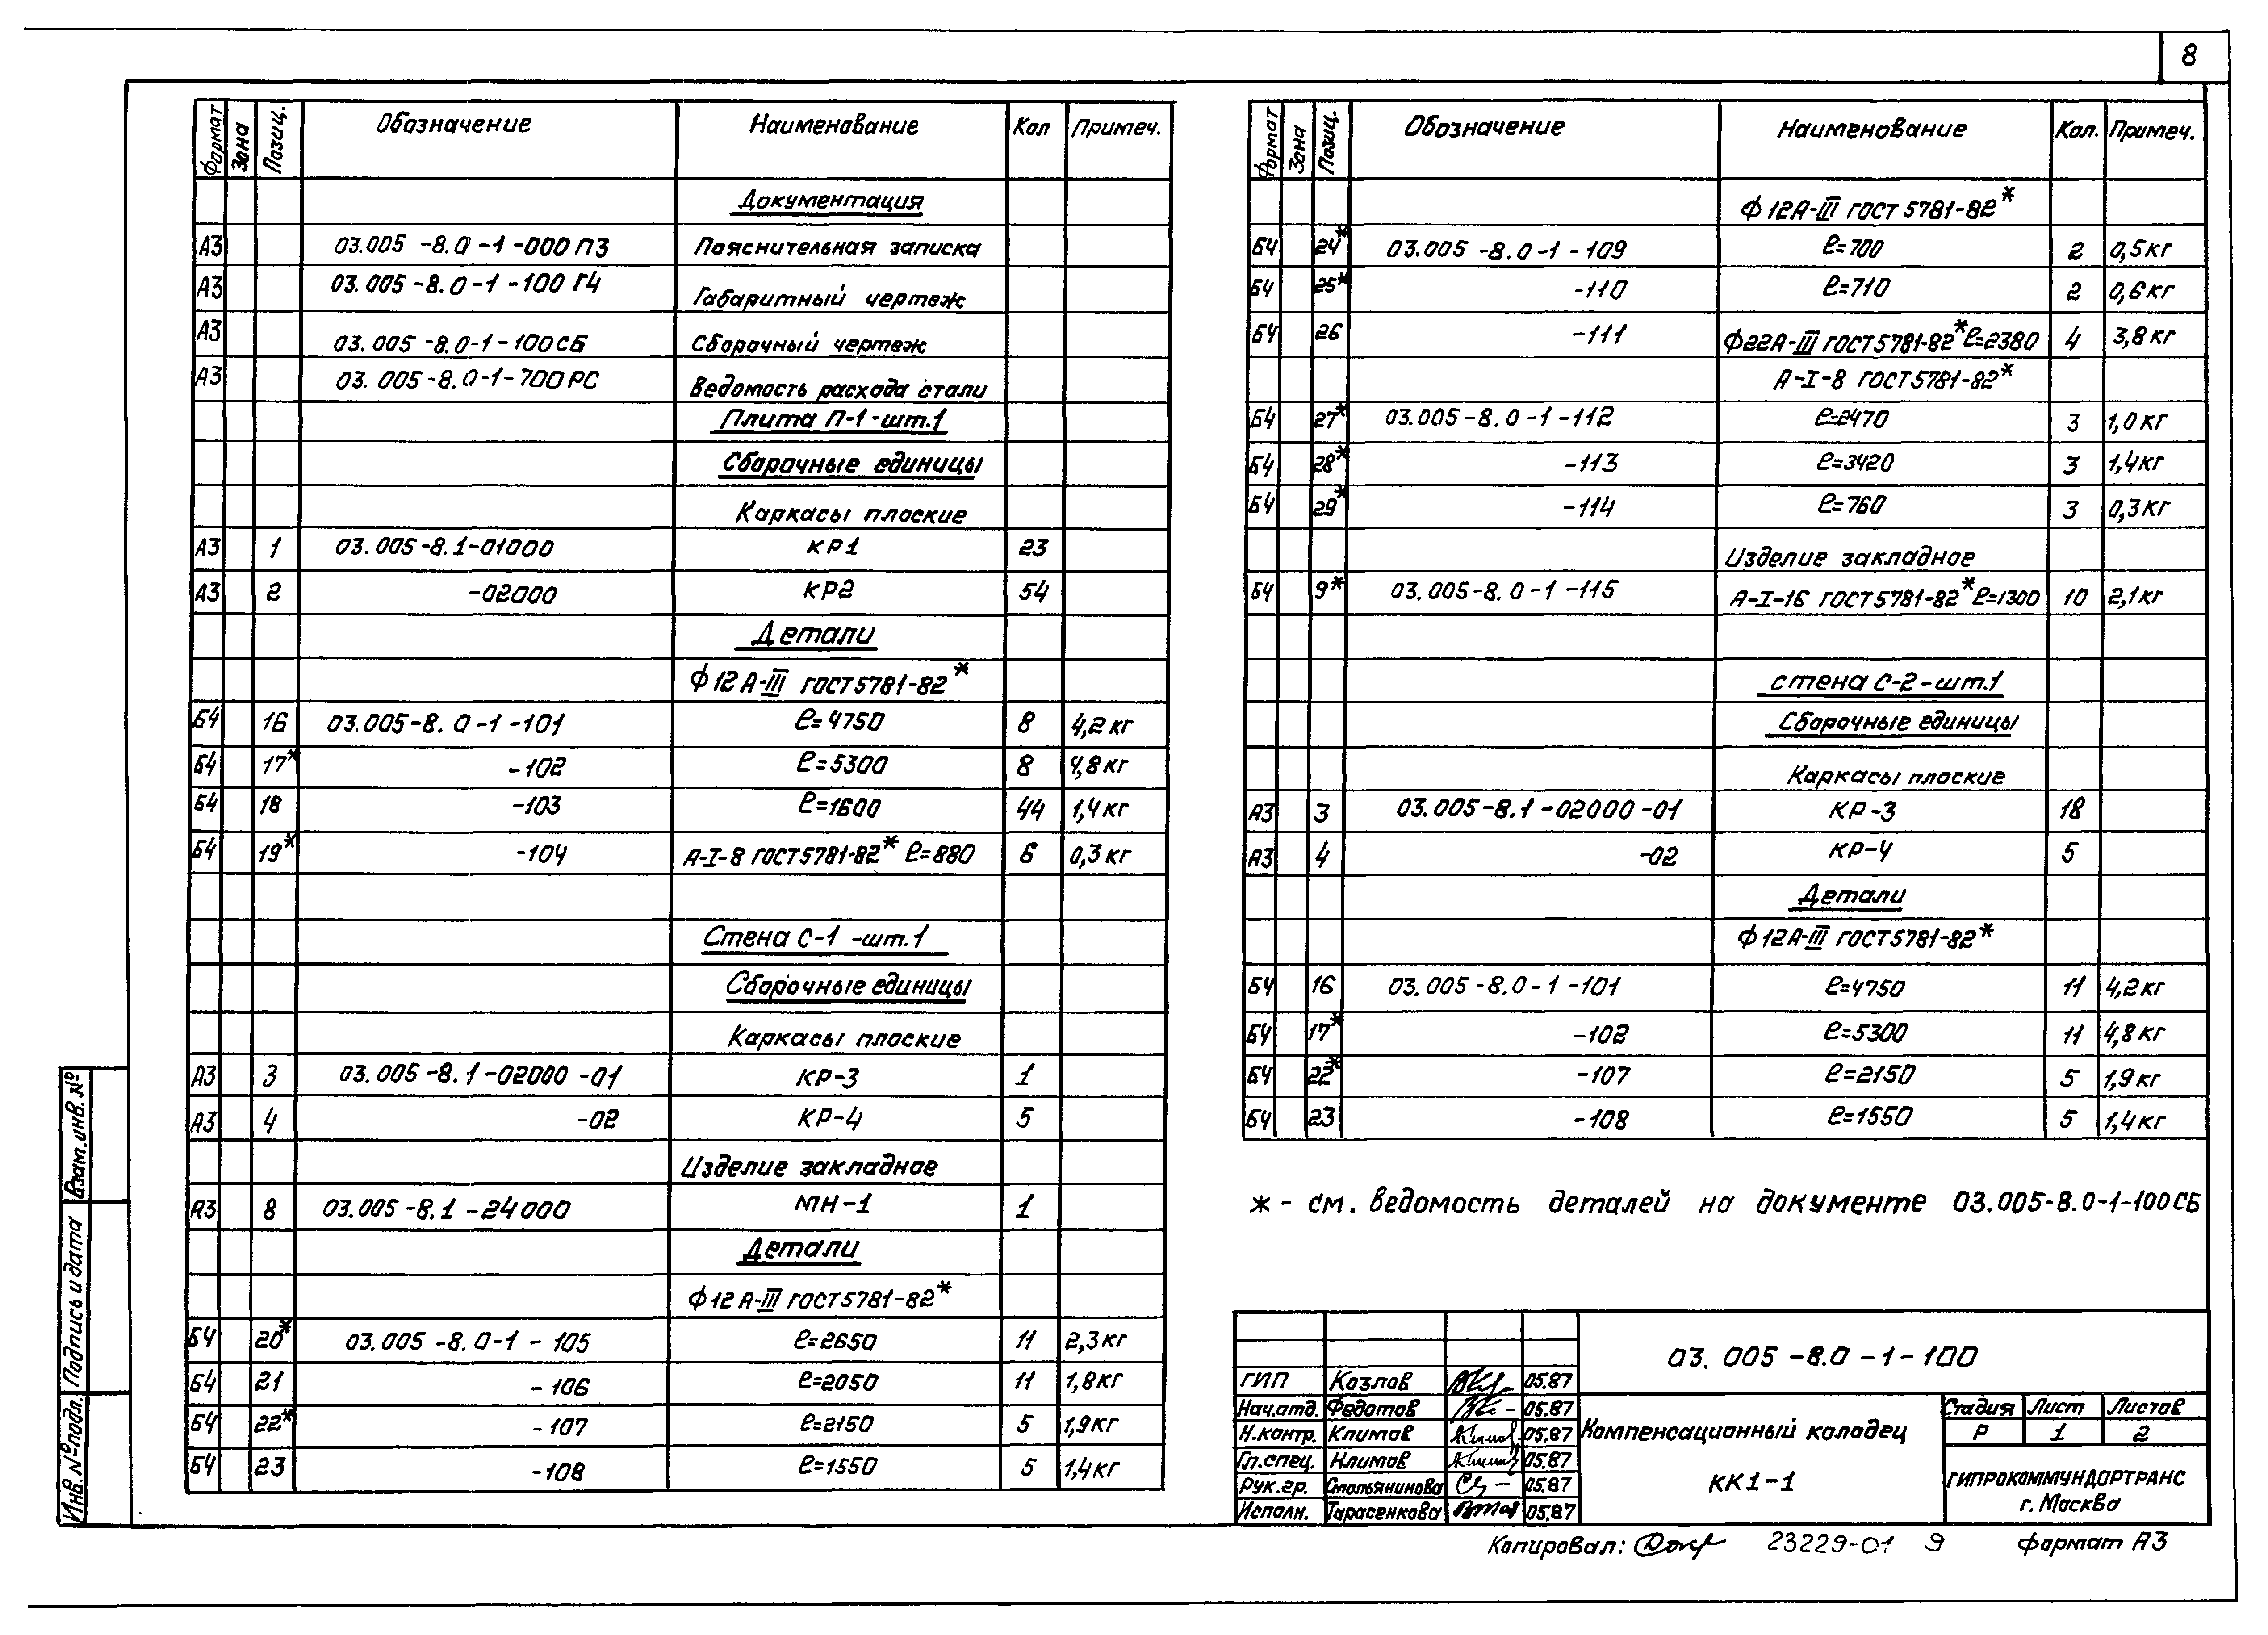 8
Формат Зона Позиц. Обозначение Наименование Кол Примеч.
Документация
А3 03.005-8.0-1-000 ПЗ Пояснительная записка
А3 03.005-8.0-1-100 ГЧ Габаритный чертеж
А3 03.005-8.0-1-100СБ Сборочный чертеж
А3 03.005-8.0-1-700РС Ведомость расхода стали
Плита П-1-шт.1
Сборочные единицы
Каркасы плоские
А3 1 03.005-8.1-01000 КР1 23
А3 2 -02000 КР2 54
Детали
Ф12А-III ГОСТ5781-82*
БЧ 16 03.005-8.0-1-101 ℓ=4750 8 4,2кг
БЧ 17* -102 ℓ=5300 8 4,8кг
БЧ 18 -103 ℓ=1600 44 1,4кг
БЧ 19* -104 А-I-8 ГОСТ5781-82* ℓ=880 6 0,3кг
Стена С-1-шт.1
Сборочные единицы
Каркасы плоские
А3 3 03.005-8.1-02000-01 КР-3 1
А3 4 -02 КР-4 5
Изделие закладное
А3 8 03.005-8.1-24000 МН-1 1
Детали
Ф12А-III ГОСТ5781-82*
БЧ 20* 03.005-8.0-1-105 ℓ=2650 11 2,3кг
БЧ 21 -106 ℓ=2050 11 1,8кг
БЧ 22* -107 ℓ=2150 5 1,9кг
БЧ 23 -108 ℓ=1550 5 1,4кг
Формат Зона Позиц. Обозначение Наименование Кол. Примеч.
Ф12А-III ГОСТ5781-82*
БЧ 24* 03.005-8.0-1-109 ℓ=700 2 0,5кг
БЧ 25* -110 ℓ=710 2 0,6кг
БЧ 26 -111 Ф22А-III ГОСТ5781-82* ℓ=2380 4 3,8кг
А-I-8 ГОСТ5781-82*
БЧ 27* 03.005-8.0-1-112 ℓ=2470 3 1,0кг
БЧ 28* -113 ℓ=3420 3 1,4кг
БЧ 29* -114 ℓ=760 3 0,3кг
Изделие закладное
БЧ 9* 03.005-8.0-1-115 А-I-16 ГОСТ5781-82* ℓ=1300 10 2,1кг
стена С-2-шт.1
Сборочные единицы
Каркасы плоские
А3 3 03.005-8.1-02000-01 КР-3 18
А3 4 -02 КР-4 5
Детали
Ф12А-III ГОСТ5781-82*
БЧ 16 03.005-8.0-1-101 ℓ=4750 11 4,2кг
БЧ 17* -102 ℓ=5300 11 4,8кг
БЧ 22* -107 ℓ=2150 5 1,9кг
БЧ 23 -108 ℓ=1550 5 1,4кг
* - см. ведомость деталей на документе 03.005-8.0-1-100СБ
03.005-8.0-1-100
ГИП Козлов 05.87
Нач.отд. Федотов 05.87
Н.контр. Климов 05.87
Гл.спец. Климов 05.87
Рук.гр. Смольянинова 05.87
Исполн. Тарасенкова 05.87
Компенсационный колодец
КК1-1
Стадия Лист Листов
Р 1 2
ГИПРОКОММУНДОРТРАНС
г. Москва
Копировал: 23229-01 9 Формат А3
Взам.инв.№
Подпись и дата
Инв.№подл.